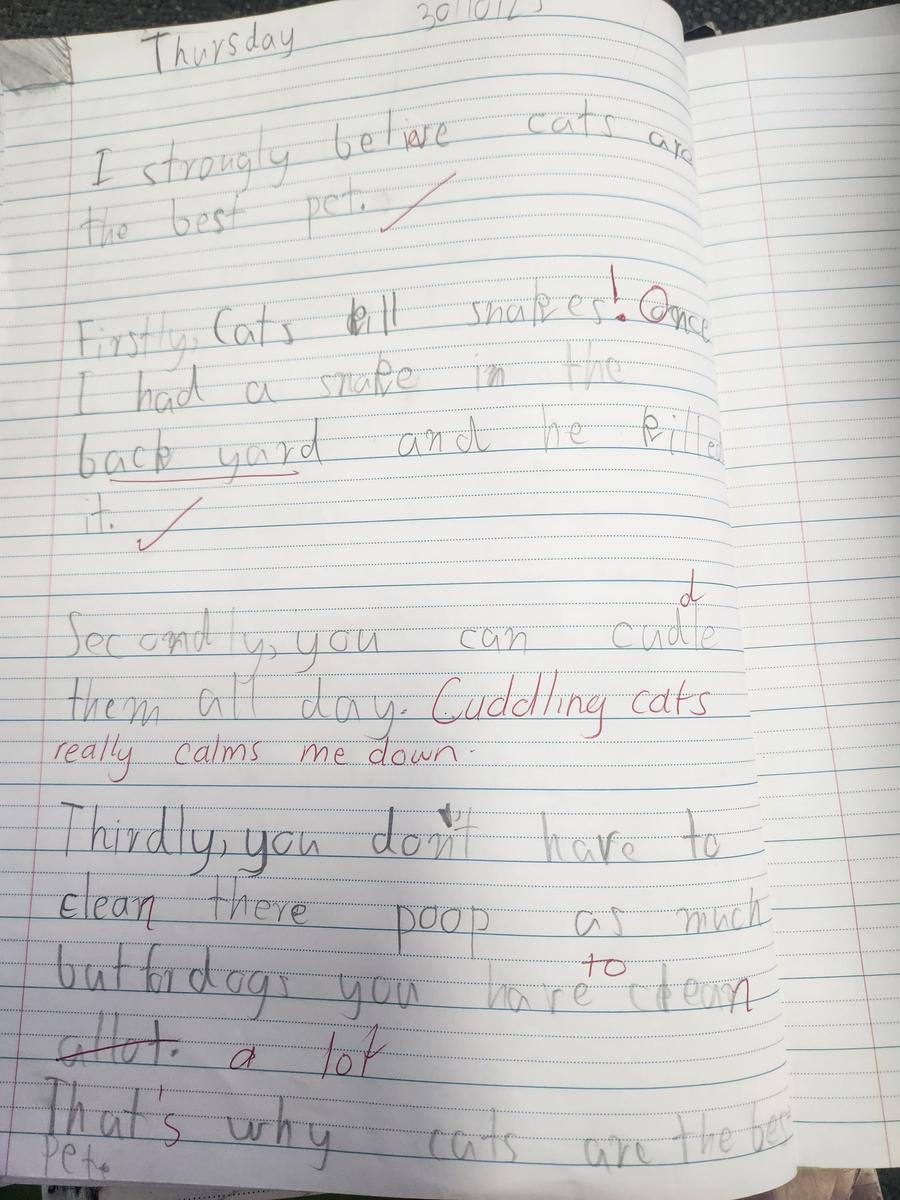 Thursday 30/10/25
I strongly belive cats are
the best pet.
Firstly, Cats kill snakes! Once
I had a snake in the
back yard and he killed
it.
Secondly, you can cuddle
them all day. Cuddling cats
really calms me down.
Thirdly, you don't have to
clean there poop as much
but for dogs you have to clean
allot. a lot
That's why cats are the best
Pet.